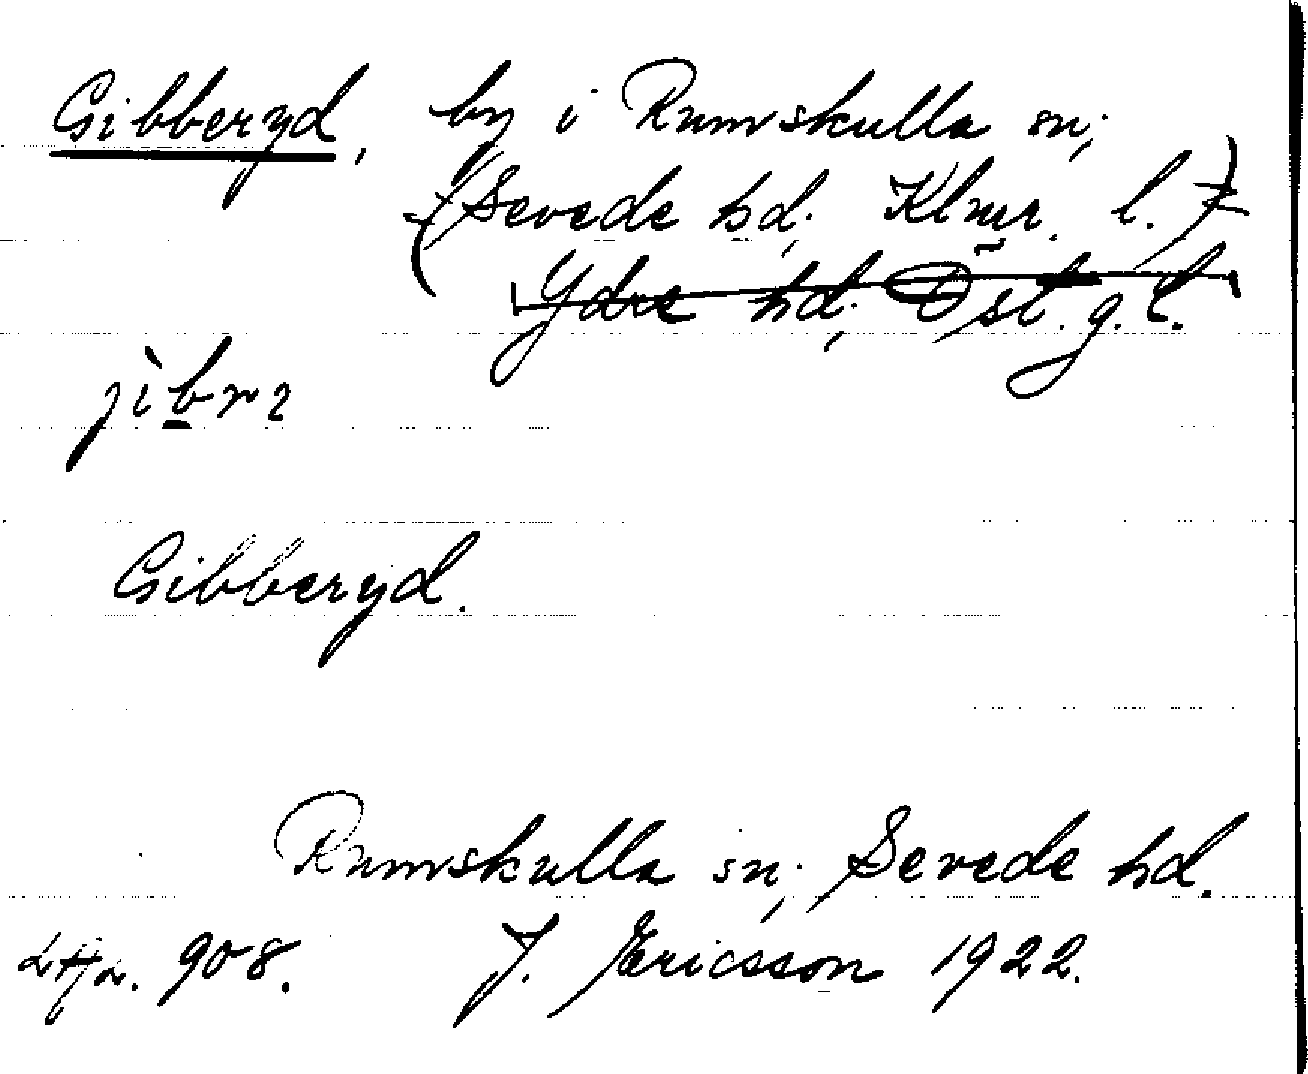 Gibberyd, by i Rumskulla sn;
(Sevede hd; Klmr. l.)
Ydre hd; Öst. g. l.
Gibberyd.
Rumskulla sn; Sevede hd.
908. J. Ericsson 1922.